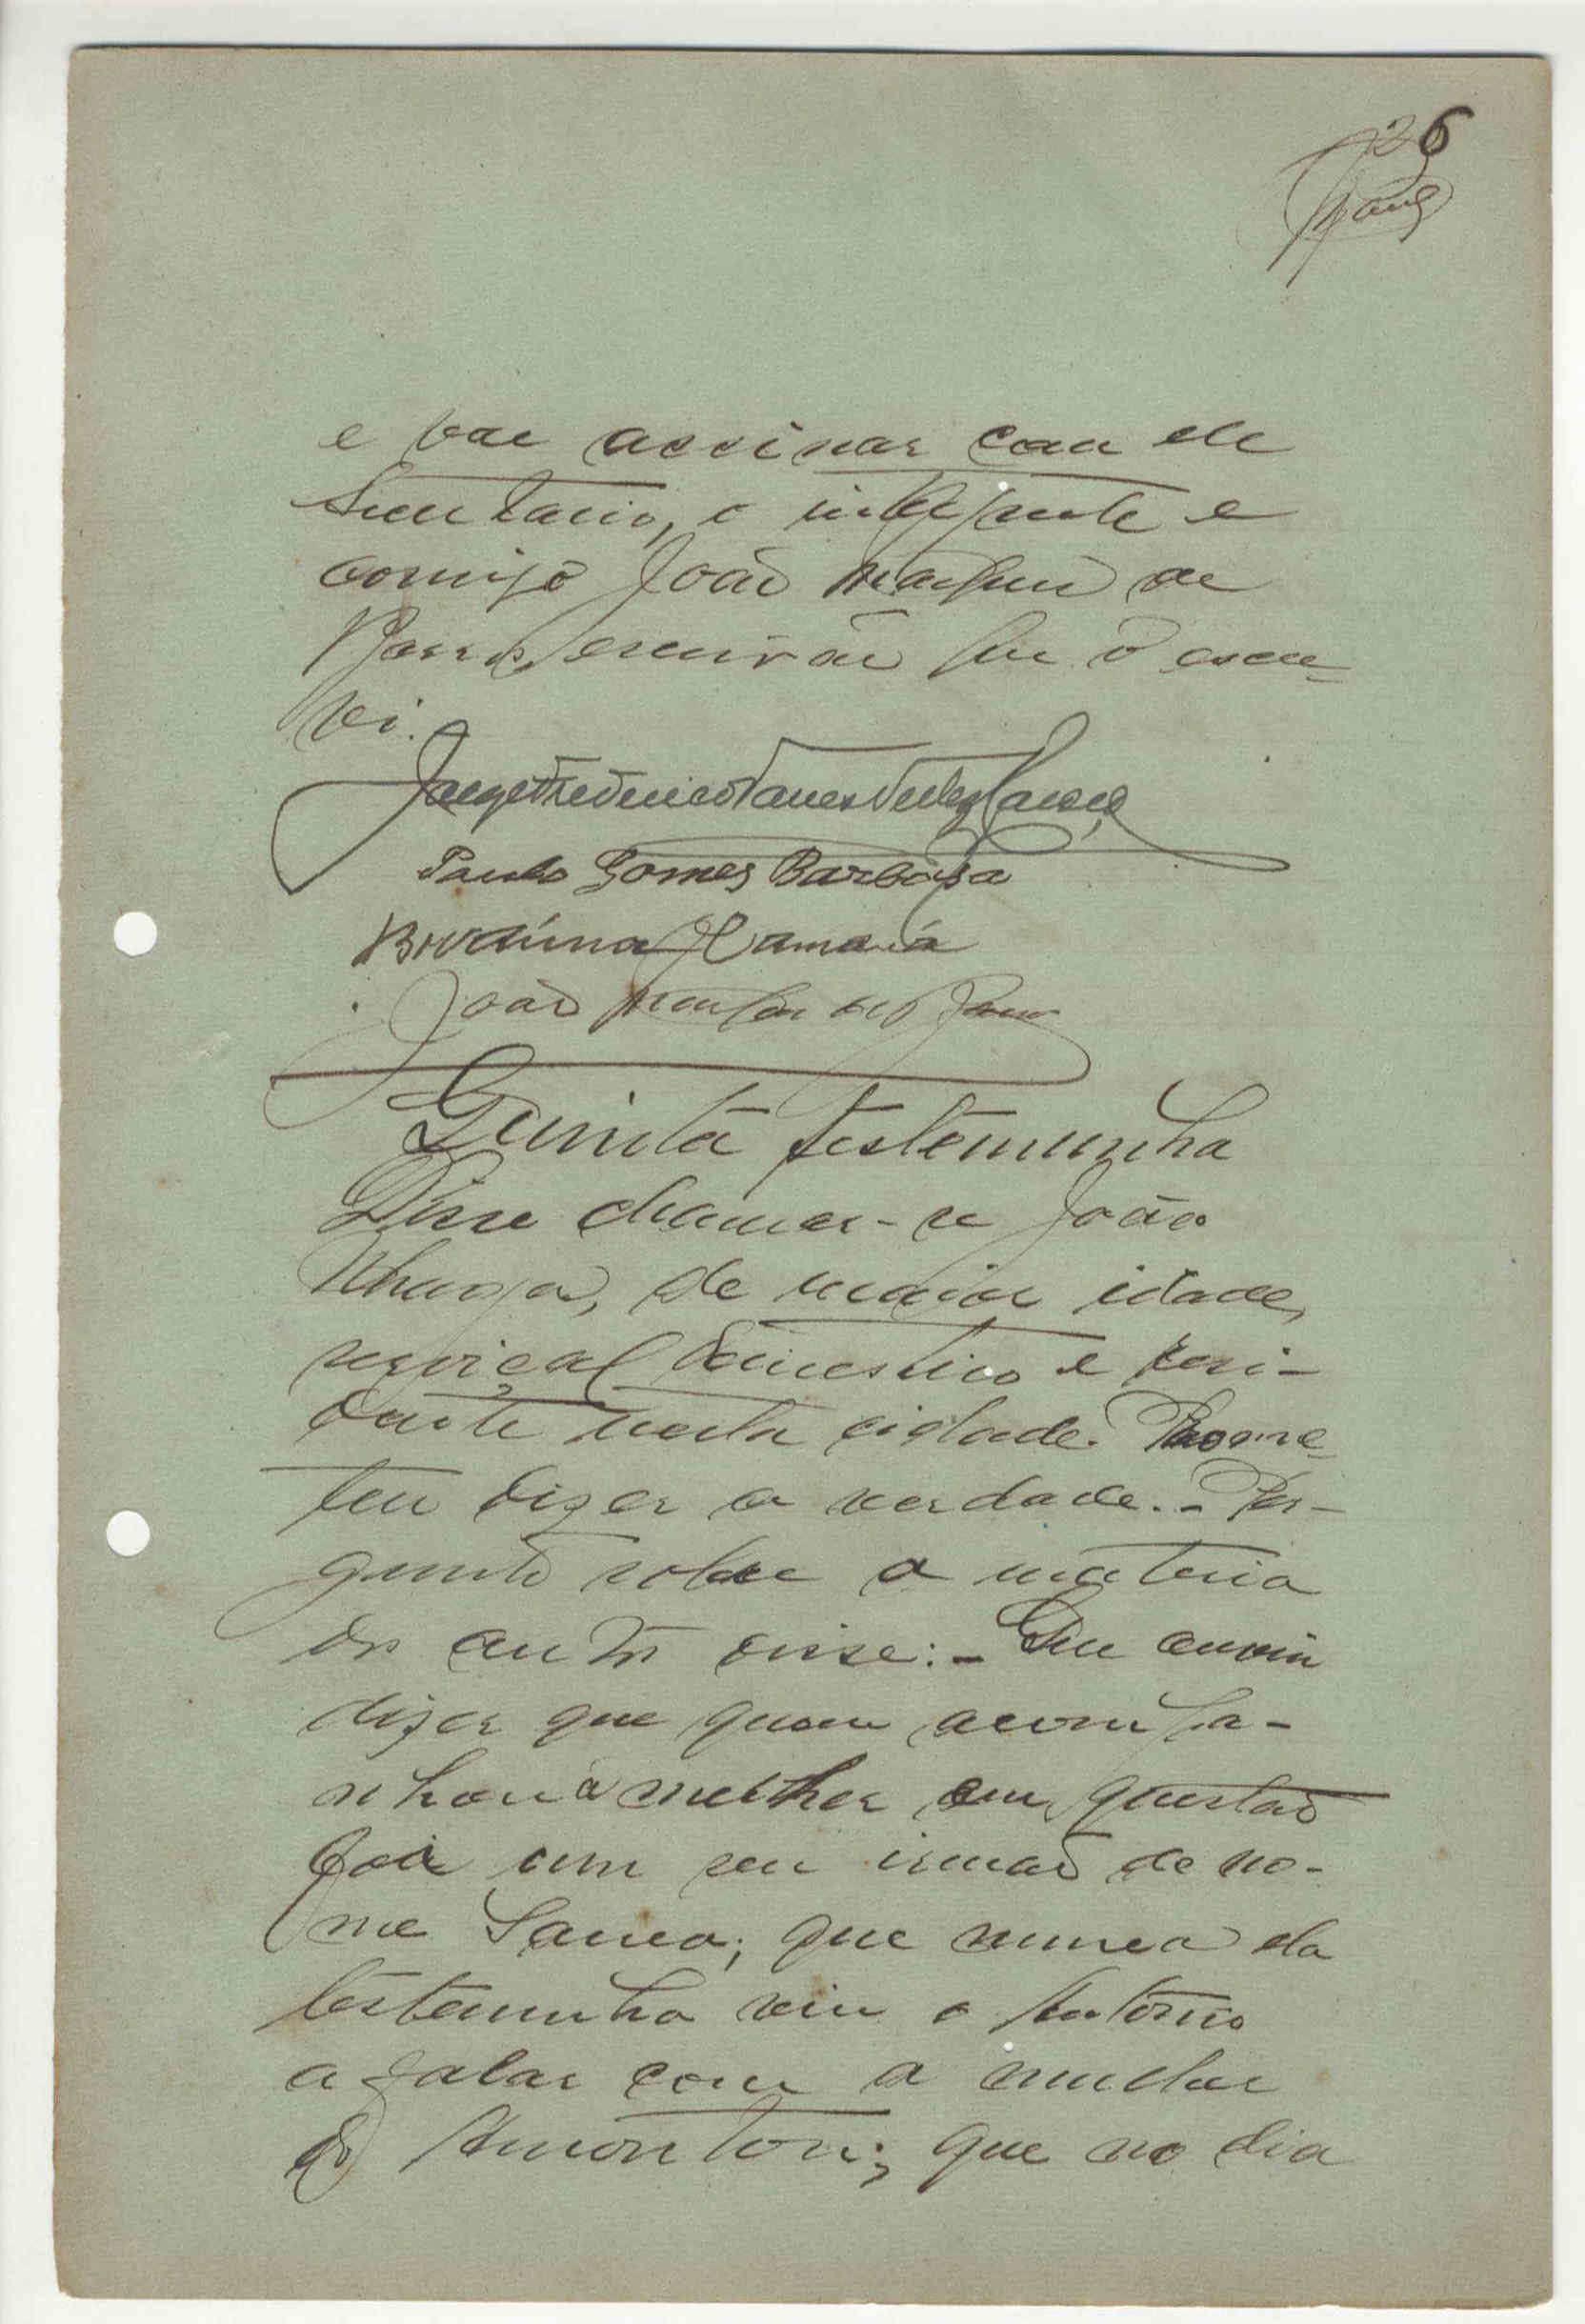 26
e vae assinar com ele
Secretario, o interprete e
comigo João de
Barros, escrivão que o escre-
vi.
Jorge Frederico Torres Velez Caroço
Paulo Gomes Barbosa
Camará
João de Barros
Quinta testemunha
Disse chamar-se João
de maior idade,
serviçal domestico e resi-
dente nesta cidade. Prome-
teu dizer a verdade. - Per-
guntado sobre a materia
dos autos disse: - Que ouviu
dizer que quem acompa-
nhou a mulher em questão
foi um seu irmão de no-
me que nunca ela
testemunha viu o Antonio
a falar com a mulher
do que no dia